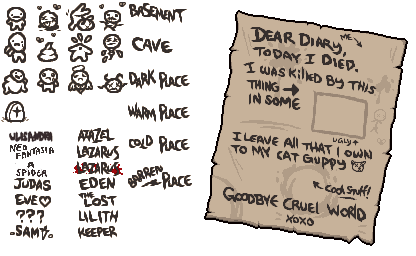 BASEMENT
CAVE
DARK PLACE
WARM PLACE
COLD PLACE
BARREN PLACE
NEO
FANTASIA
A
SPIDER
JUDAS
EVE♡
???
-SAM-
AZAZEL
LAZARUS
LAZARUS
EDEN
THE
LOST
LILITH
KEEPER
DEAR DIARY,
ME
TODAY I DIED.
I WAS KILLED BY THIS
THING →
IN SOME
UGLY↑
I LEAVE ALL THAT I OWN
TO MY CAT GUPPY
COOL STUFF!
GOODBYE CRUEL WORLD
XOXO